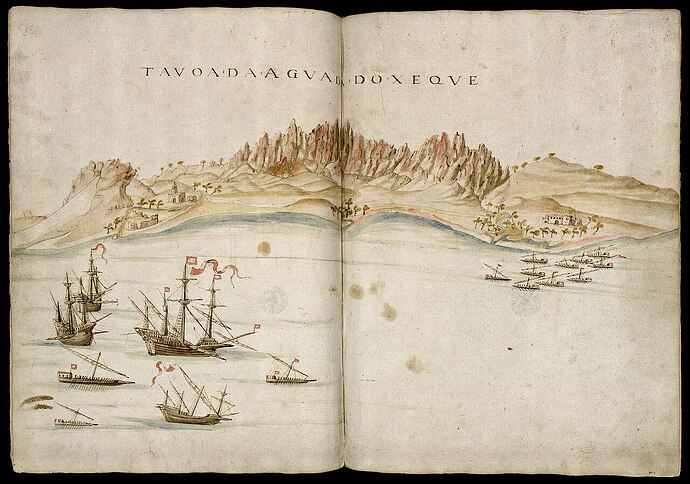 TAVOA·DA·AGVADA·DO·XEQVE